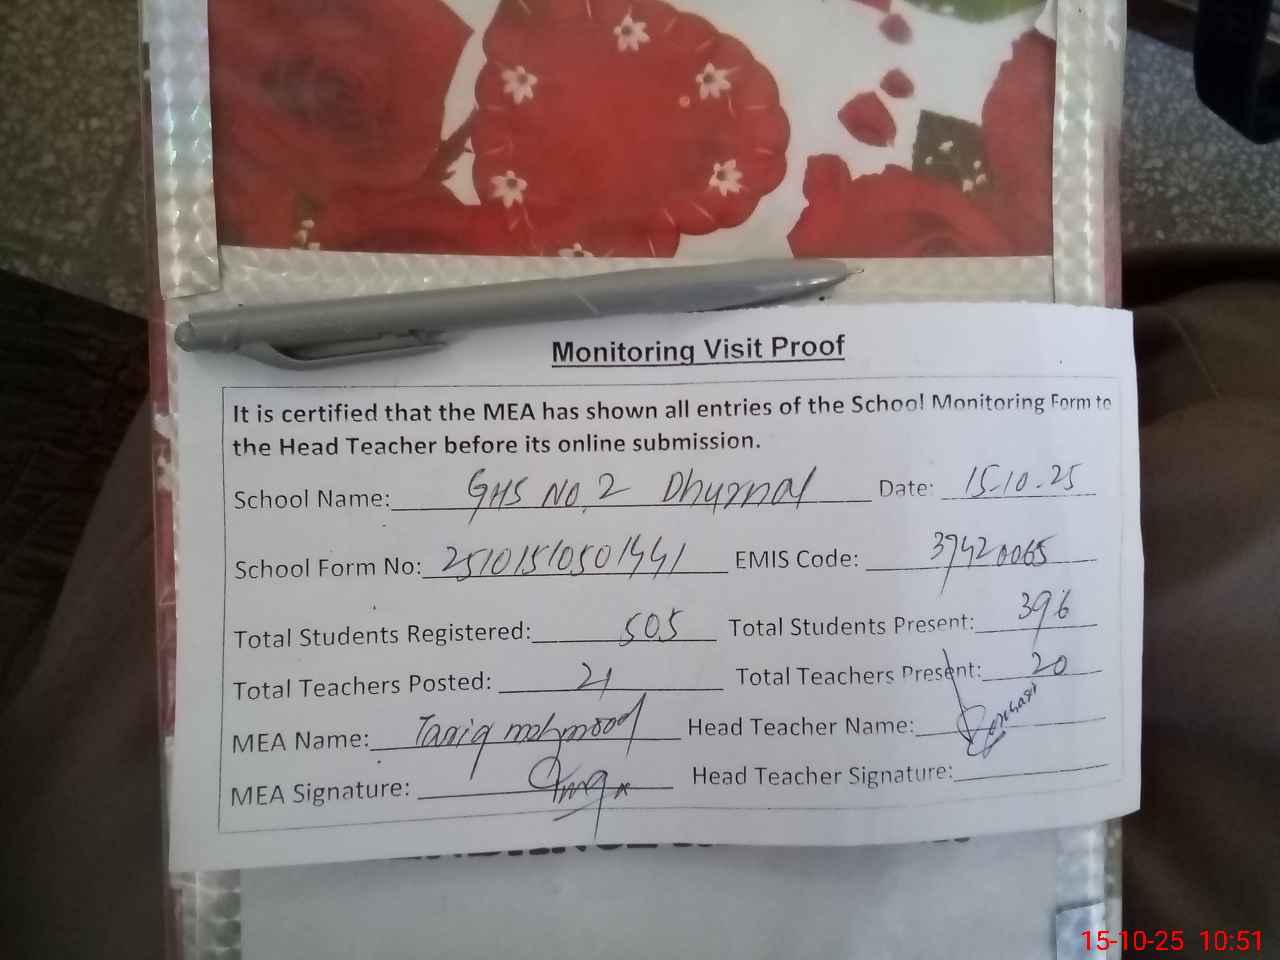 Monitoring Visit Proof
It is certified that the MEA has shown all entries of the School Monitoring Form to
the Head Teacher before its online submission.
School Name: GHS NO. 2 Dhurnal Date: 15-10-25
School Form No: 25101510501441 EMIS Code: 37420065
Total Students Registered: 505 Total Students Present: 396
Total Teachers Posted: 21 Total Teachers Present: 20
MEA Name: Tariq mahmood Head Teacher Name:
MEA Signature: Head Teacher Signature:
15-10-25 10:51